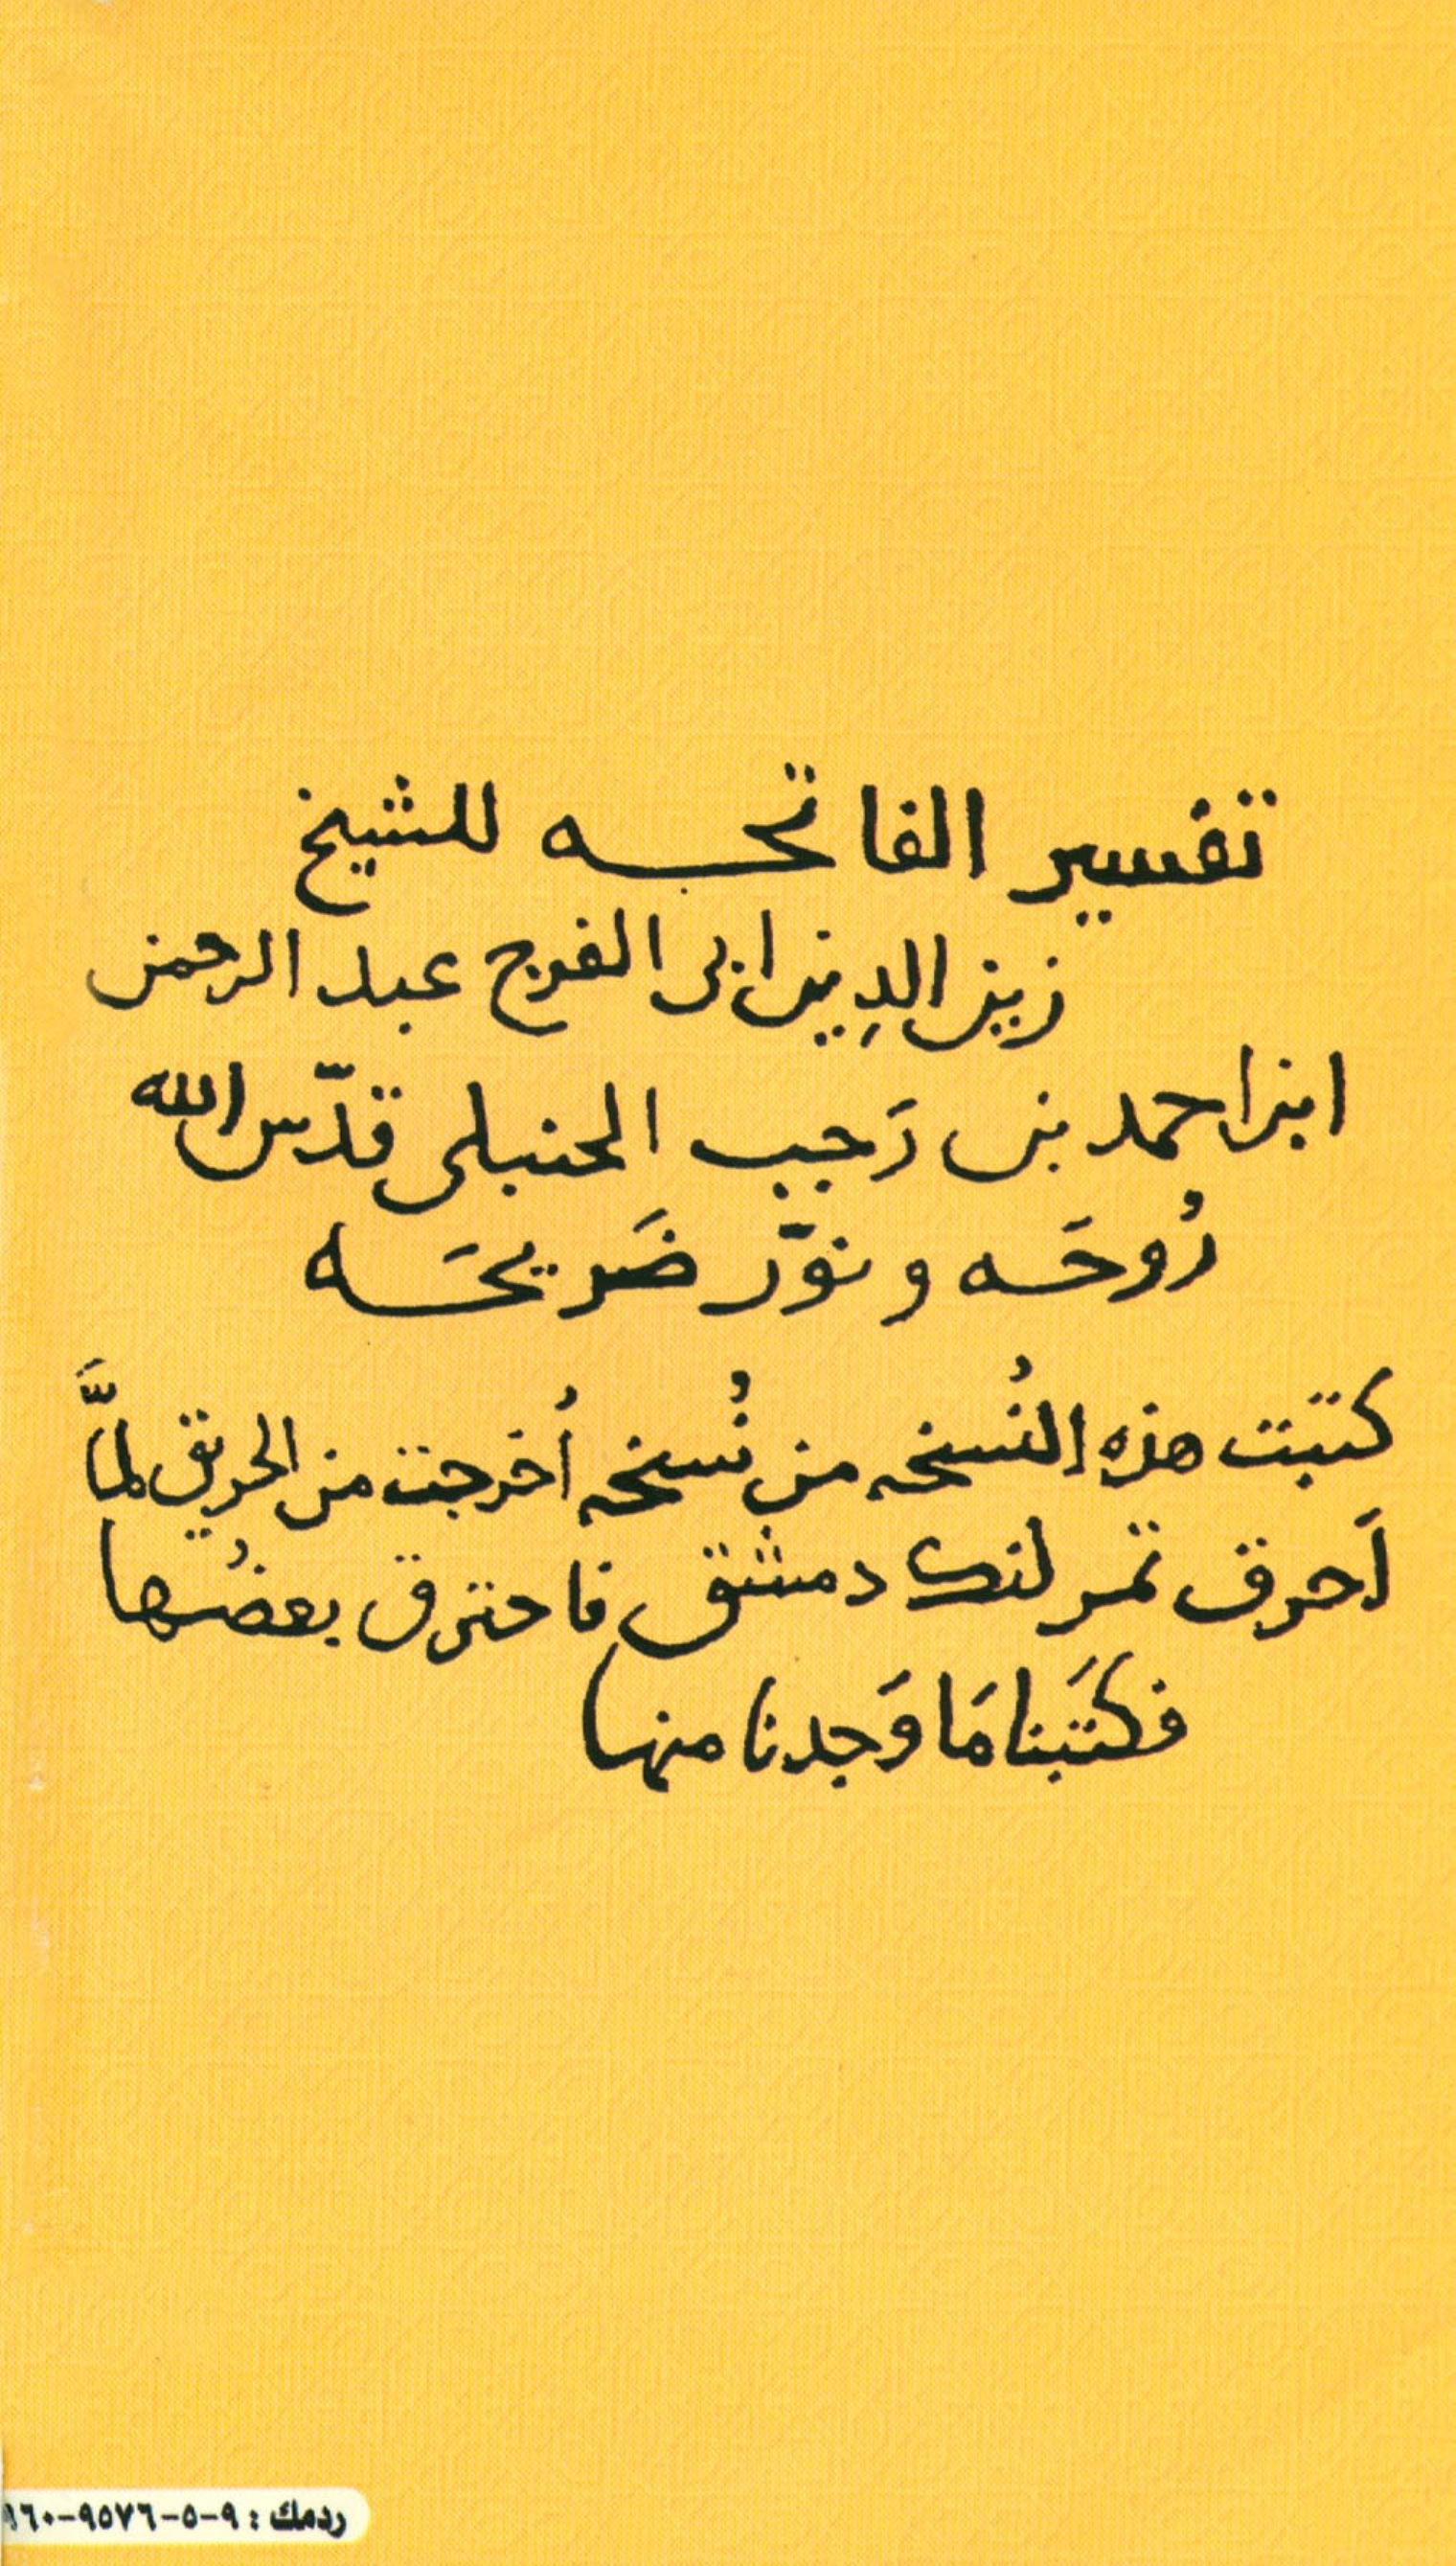 تفسير الفاتحه للشيخ
زين الدِين ابى الفرج عبد الرحمن
ابن احمد بن رَجب الحنبلى قدّس الله
رُوحَه و نوّر ضَريحَه
كتبت هذه النُسخه من نُسخه أُخرجت من الحريق لمَّا
أَحرق تمرلنك دمشق فاحترق بعضُها
فكتَبنا مَا وَجدنا منها
ردمك : ٩-٥-٩٥٧٦-٩٦٠